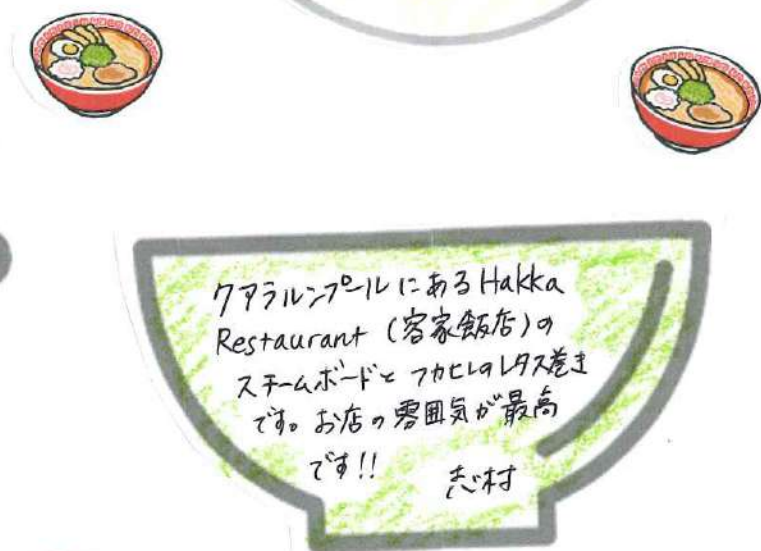 クアラルンプールにあるHakka
Restaurant (客家飯店)の
スチームボードとフカヒレのレタス巻き
です。お店の雰囲気が最高
です!!
志村